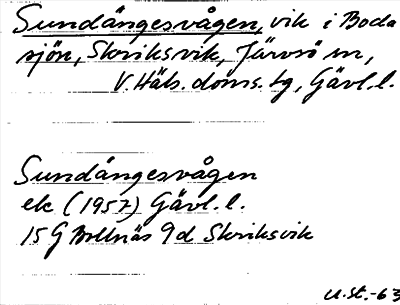 Sundängesvågen, vik i Boda
sjön, Skriksvik, Järvsö sn,
V. Häls. doms. tg, Gävl. l.
Sundängesvågen
ek (1957) Gävl. l.
15G Bollnäs 9d Skriksvik
U.St.-63